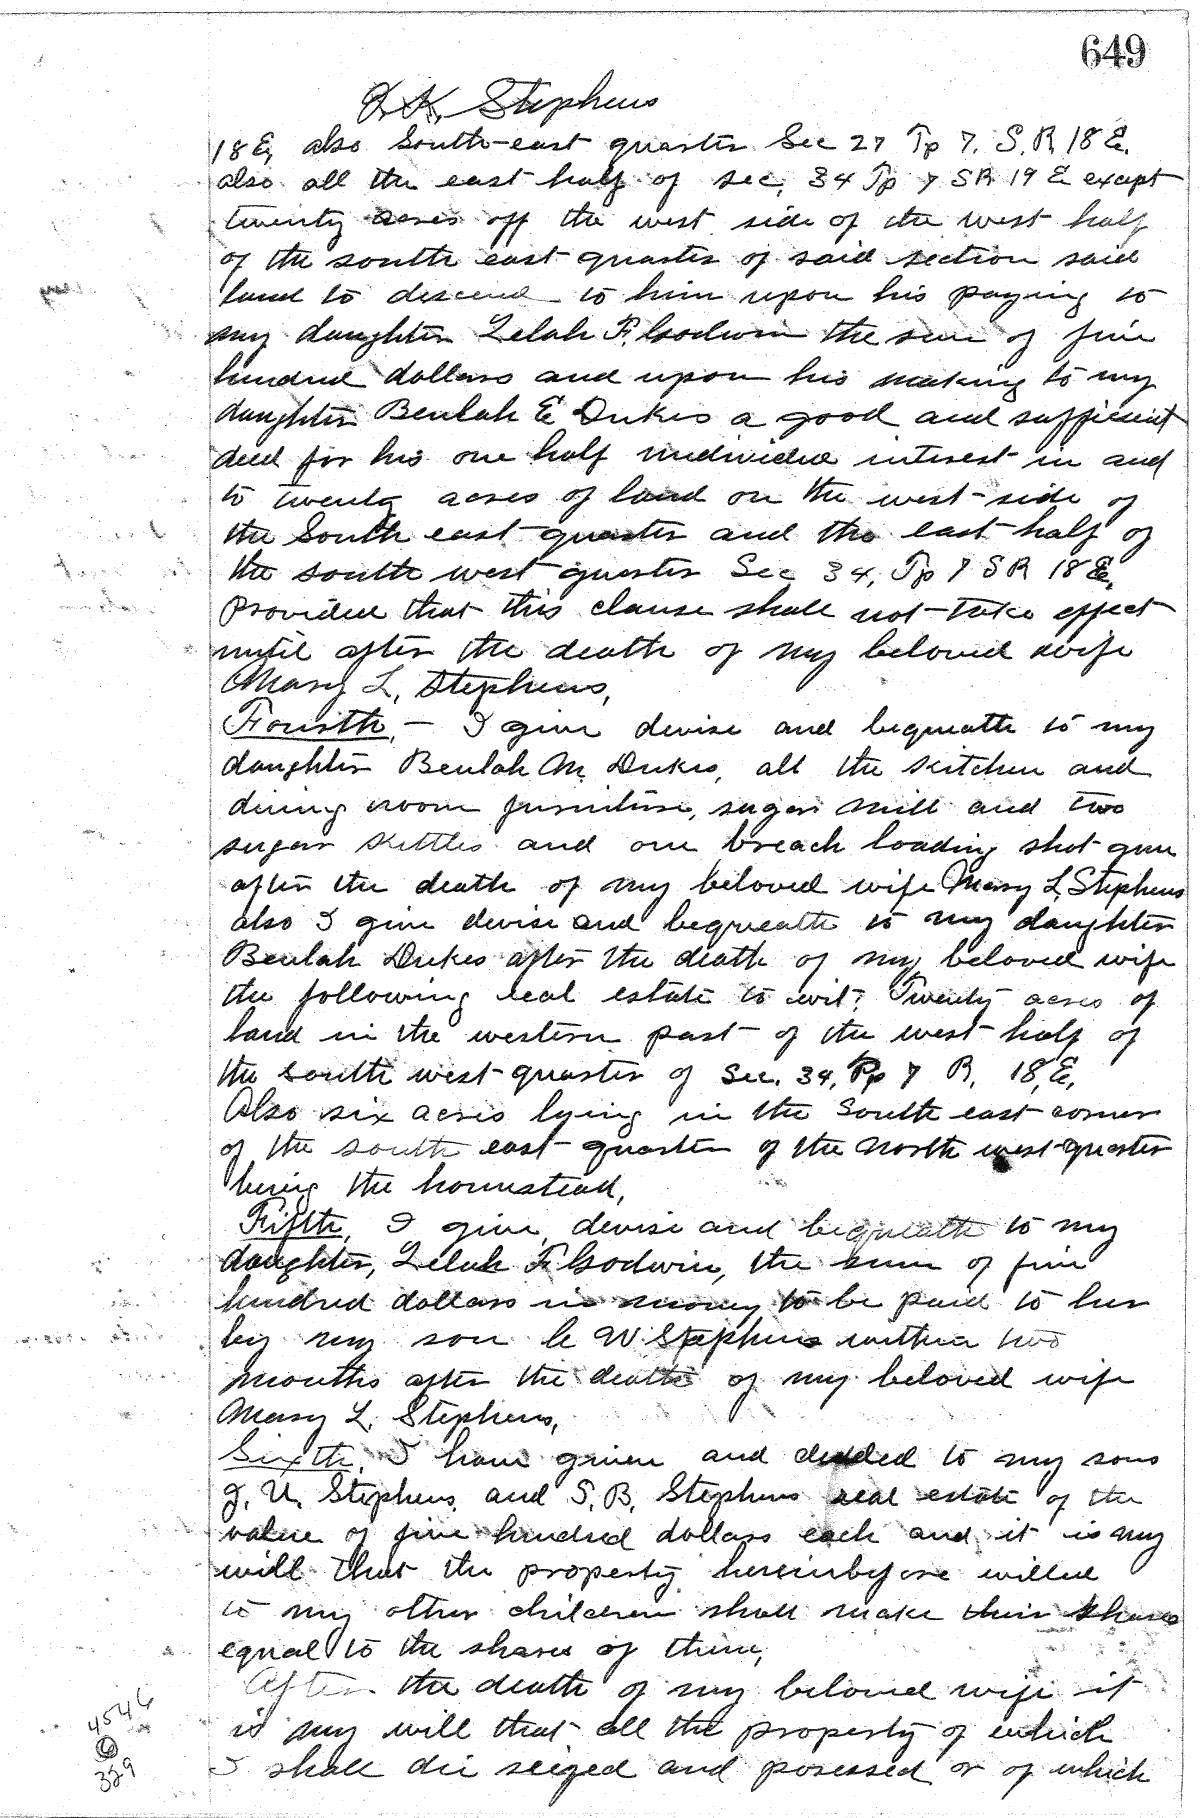 649
Stephens
18 E, also South-east quarter Sec 27 Tp 7. S. R 18 E.
also all the east half of sec, 34 Tp 7 SR 19 E except
twenty acres off the west side of the west half
of the south east quarter of said section said
land to descend to him upon his paying to
my daughter Lelah F. Godwin the sum of five
hundred dollars and upon his making to my
daughter Beulah E Dukes a good and sufficient
deed for his one half undivided interest in and
to twenty acres of land on the west-side of
the South east quarter and the east half of
the south west quarter Sec 34, Tp 7 SR 18 E.
Provided that this clause shall not take effect
until after the death of my beloved wife
Mary L, Stephens,
Fourth, - I give devise and bequeath to my
daughter Beulah M. Dukes, all the kitchen and
dining room furniture, sugar mill and two
sugar kettles and one breach loading shot gun
after the death of my beloved wife Mary L, Stephens
also I give devise and bequeath to my daughter
Beulah Dukes after the death of my beloved wife
the following real estate to wit: Twenty acres of
land in the western part of the west half of
the south west quarter of Sec. 34, Tp 7 R, 18, E,
Also six acres lying in the South east corner
of the south east quarter of the north west quarter
being the homestead,
Fifth, I give, devise and bequeath to my
daughter, Lelah F Godwin, the sum of five
hundred dollars in money to be paid to her
by my son C W Stephens within two
months after the death of my beloved wife
Mary L. Stephens,
Sixth, I have given and deeded to my sons
J. U. Stephens, and S. B. Stephens real estate of the
value of five hundred dollars each and it is my
will that the property hereinbefore willed
to my other children shall make their shares
equal to the shares of them,
After the death of my beloved wife it
is my will that all the property of which
I shall die seized and posessed or of which
4546
6
329